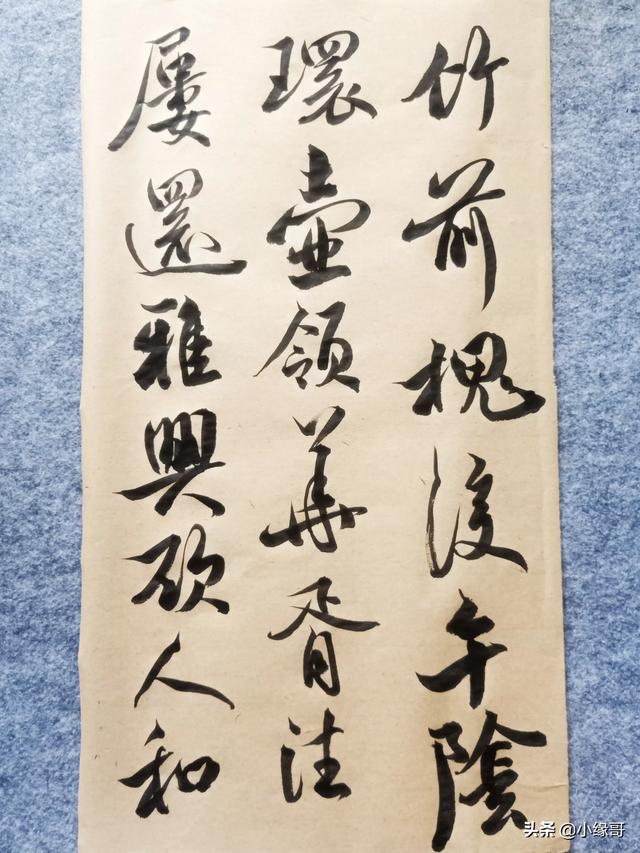 竹前槐後午陰
環壺領華胥往
屢還雅興欲人和
头条 @小缘哥